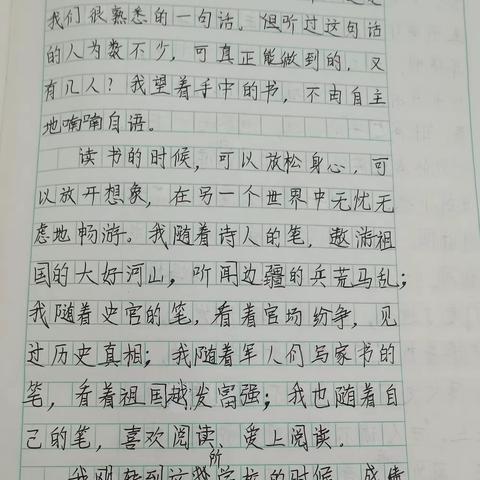 我们很熟悉的一句话。但听过这句话
的人为数不少，可真正能做到的，又
有几人？我望着手中的书，不由自主
地喃喃自语。
读书的时候，可以放松身心，可
以放开想象，在另一个世界中无忧无
虑地畅游。我随着诗人的笔，遨游祖
国的大好河山，听闻边疆的兵荒马乱；
我随着史官的笔，看着官场纷争，见
过历史真相；我随着军人们写家书的
笔，看着祖国越发富强；我也随着自
己的笔，喜欢阅读、爱上阅读．
我刚转到这所学校的时候，成绩